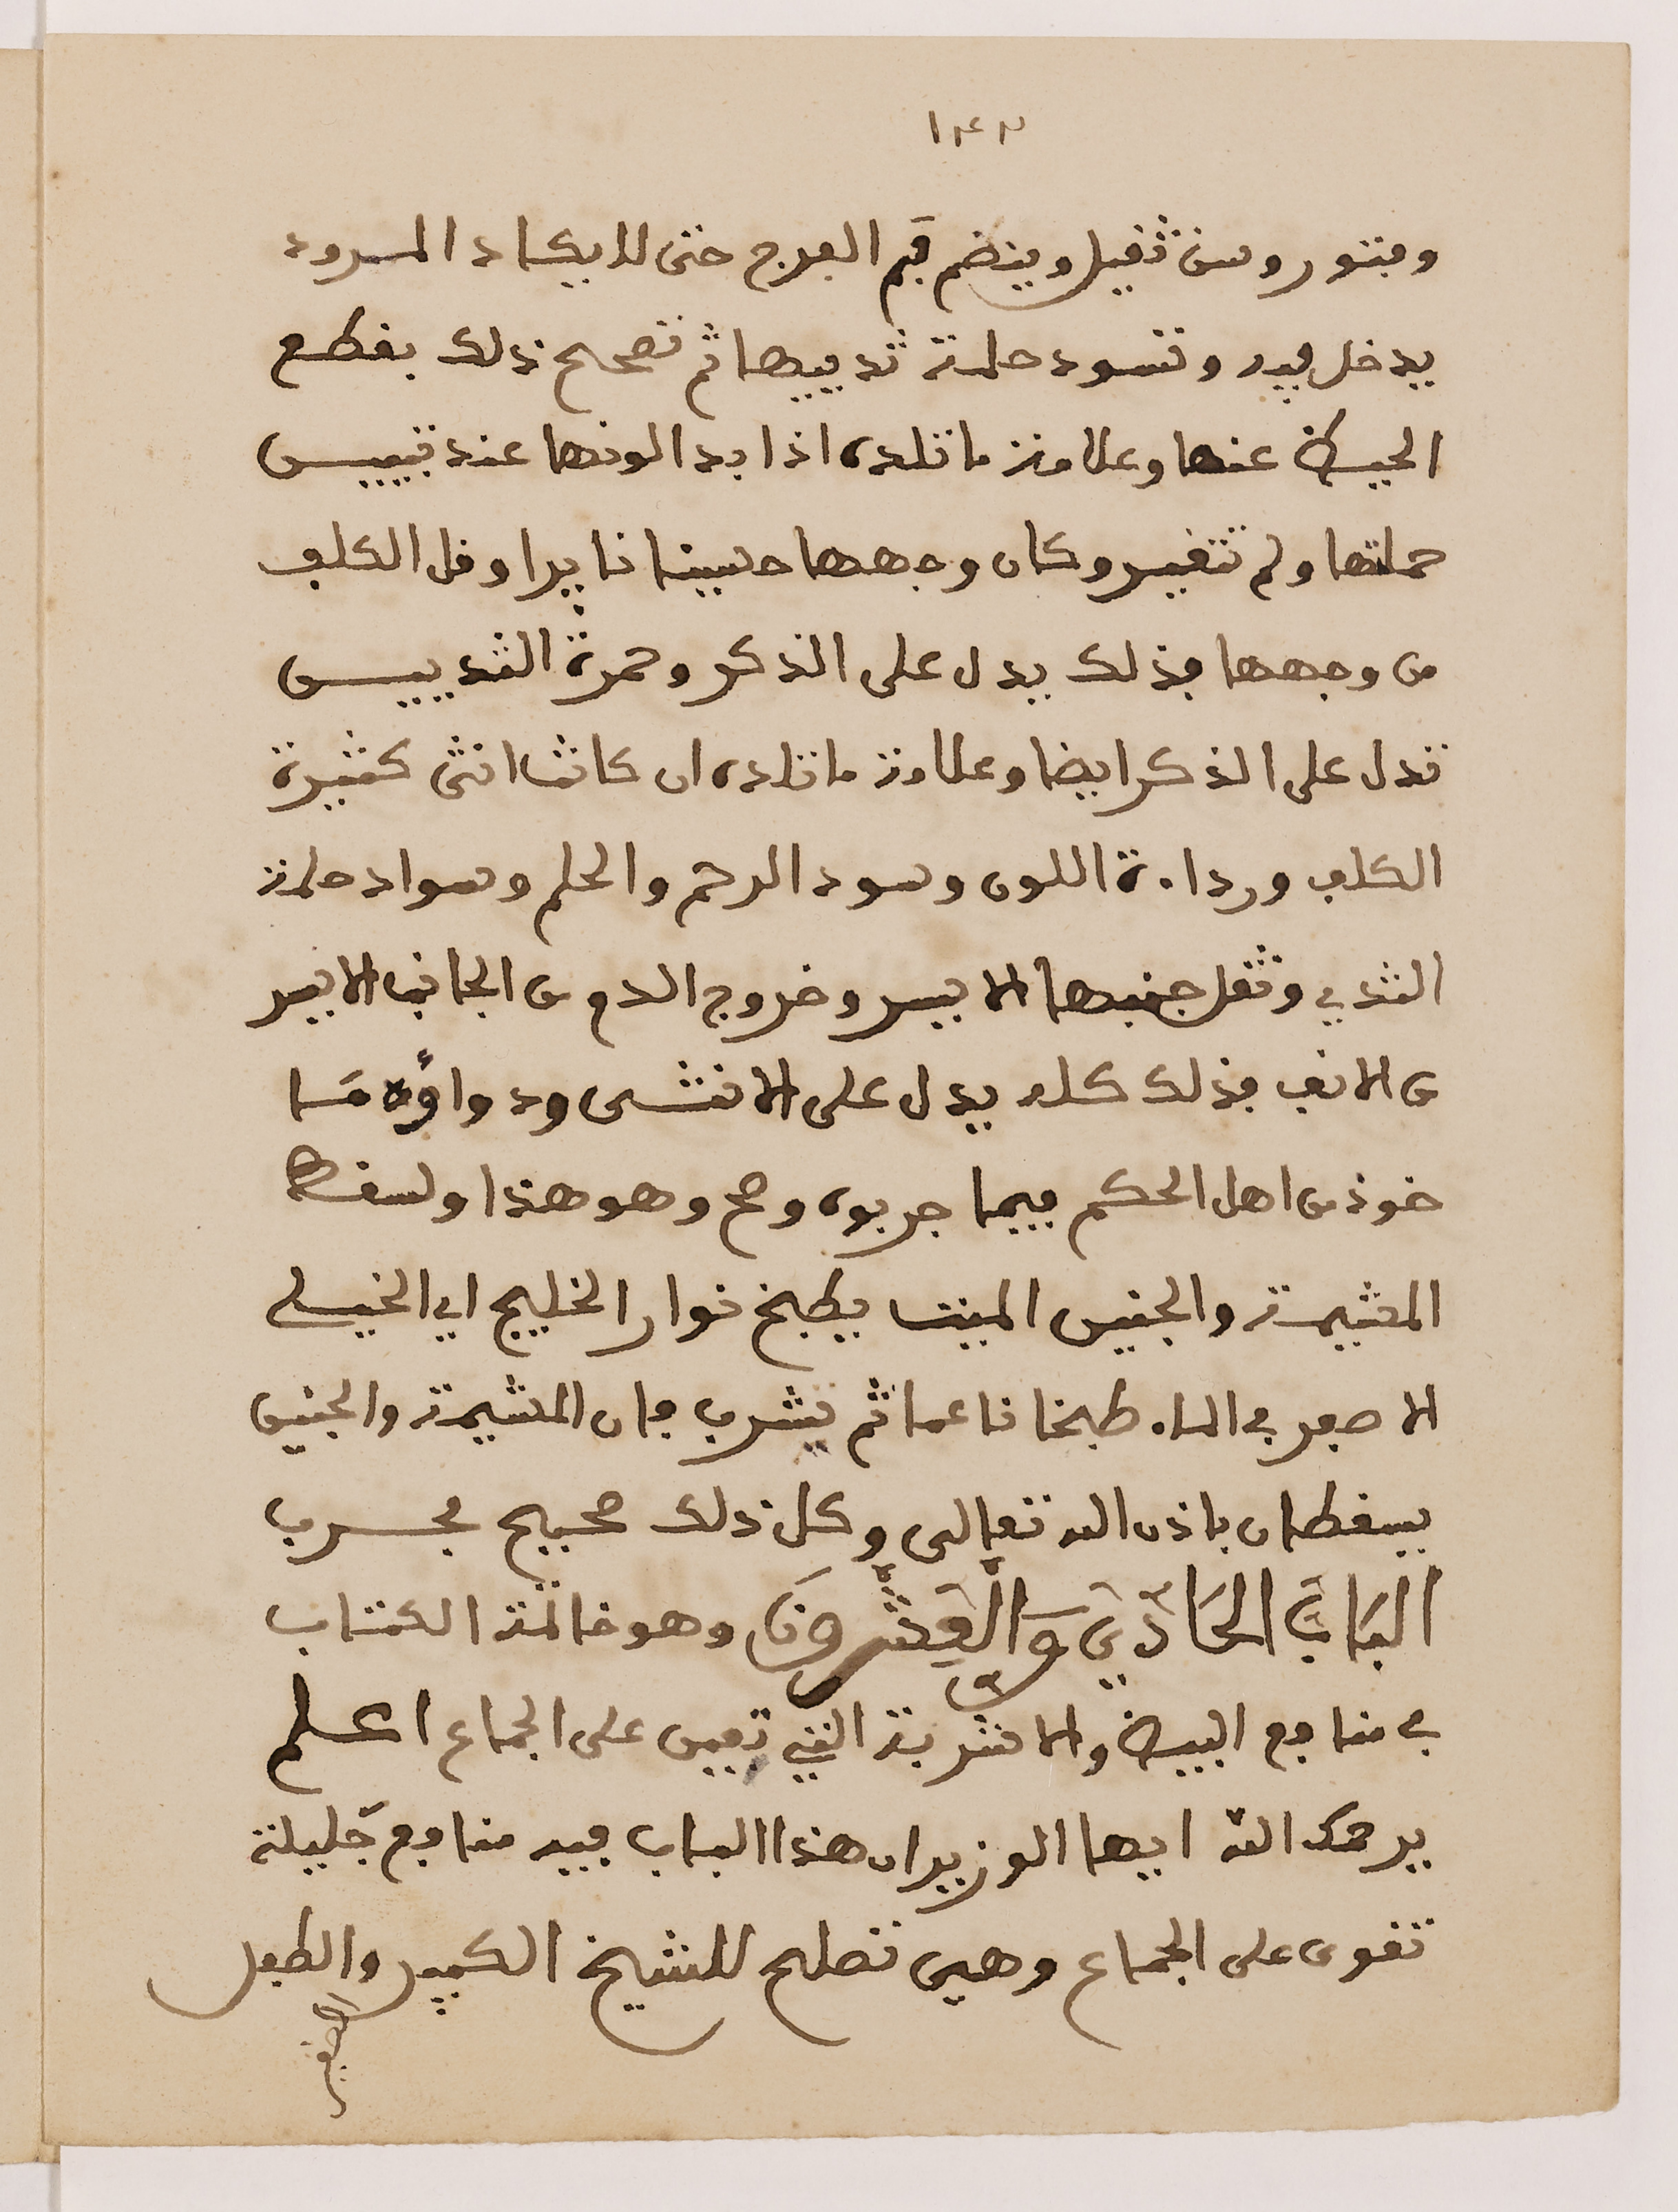 ١٤٣
وفتور وسن ثقيل وينضم فم الفرج حتى لا يكاد المرود
يدخل فيه وتسود حلمة ثدييها ثم تصحح ذلك بقطع
الحيض عنها وعلامة ما تلده اذا بدا لونها عند تبيين
حملها ولم تتغير وكان وجهها حسينا نايرا وقل الكلف
من وجهها فذلك يدل على الذكر وحمرة الثديين
تدل على الذكر ايضا وعلامة ما تلده ان كانت انثى كثيرة
الكلف ورداءة اللون وسود الرحم والحلم وسواد حلمة
الثدي وثقل جنبها الايسر وخروج الدم من الجانب الايسر
من الانف فذلك كله يدل على الانثى ودواؤه مَا
خوذ من اهل الحكم فيما جربوه وصح وهو هذا ولسقط
المثيمة والجنين الميت يطبخ نوار الخليج اي الخيلي
الاصفر في الماء طبخا ناعما ثم يشرب فان المشيمة والجنين
يسقطان باذن الله تعالى وكل ذلك صحيح مجرب
البَابُ الحَادِي وَالْعِشْرُونَ وهو خاتمة الكتاب
في منافع البيض والاشربة التي تعين على الجماع اعلم
يرحمك الله ايها الوزير ان هذا الباب فيه منافع جَليلة
تقوى على الجماع وهي تصلح للشيخ الكبير والطفل
الصغير